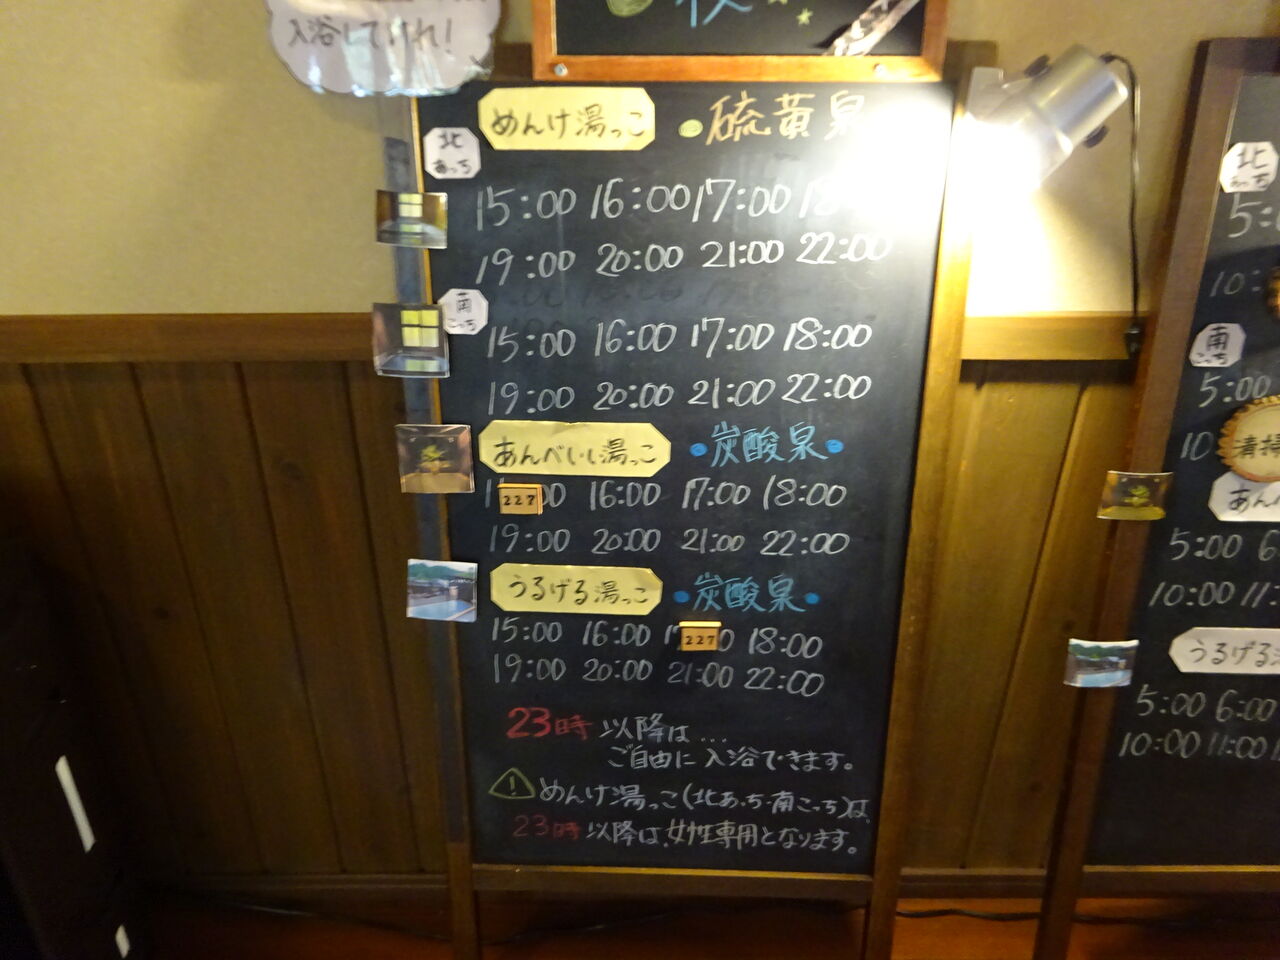 入浴してけれ!
めんけ湯っこ ・硫黄泉
北
あっち
15:00 16:00 17:00 18
19:00 20:00 21:00 22:00
南
こっち
15:00 16:00 17:00 18:00
19:00 20:00 21:00 22:00
あんべいい湯っこ ・炭酸泉・
227 16:00 17:00 18:00
19:00 20:00 21:00 22:00
うるげる湯っこ ・炭酸泉・
15:00 16:00 227 18:00
19:00 20:00 21:00 22:00
23時 以降は...
ご自由に入浴できます。
めんけ湯っこ(北あっち・南こっち)は
23時 以降は、女性専用となります。
北
あっち
5:
10:
南
こっち
5:00
10
清掃
あん
5:00 6
10:00 11:
うるげる
5:00 6:00
10:00 11:00 1